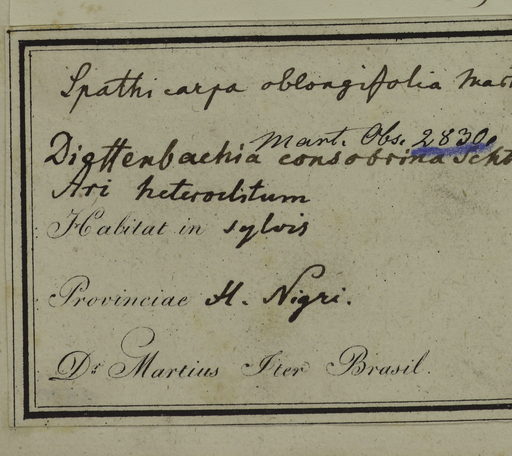 Spathicarpa oblongifolia Mart
Mart. Obs. 2830.
Dieffenbachia consobrina Scht
Ari heteroclitum
Habitat in sylvis
Provinciae H. Nigri.
Dr Martius Iter Brasil.